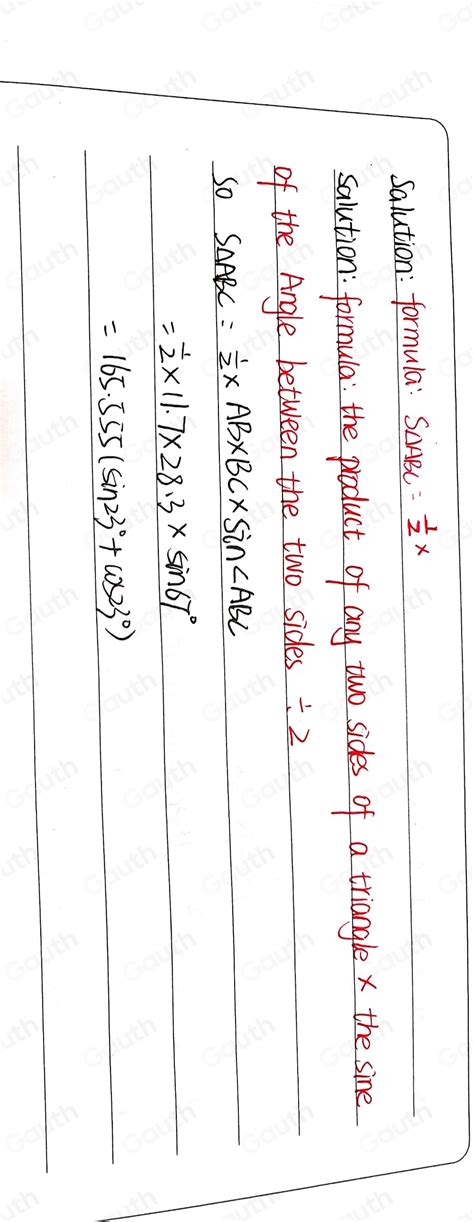 Salution: formula: S△ABC = 1/2 ×
salution: formula: the product of any two sides of a triangle × the sine
of the Angle between the two sides ÷ 2
So S△ABC = 1/2 × AB×BC×Sin<ABC
= 1/2 × 11.7×28.3 × sin67°
= 165.555(sin23° + cos23°)